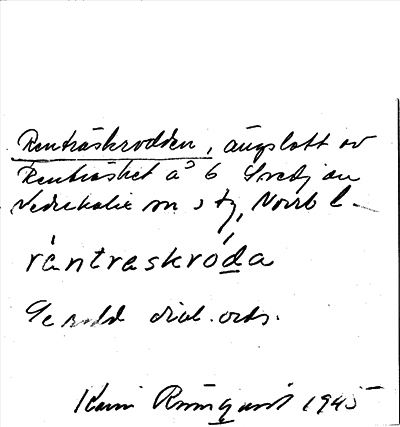 Renträskrodden, ängslott av
Renträsket å 6 Svedjan
Nederkalix sn o tg, Norrb l.
räntraskróda
Se rodd dial. ords.
Karin Ringqvist 1945